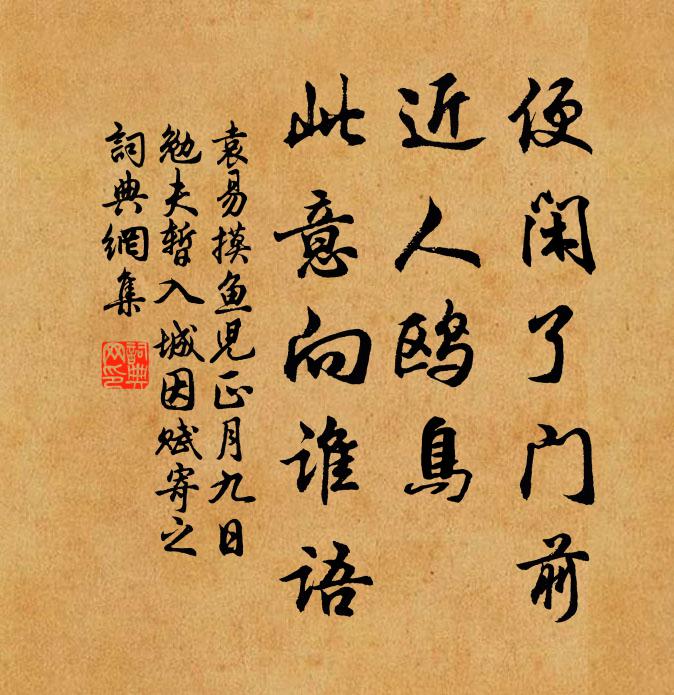 便闲了门前
近人鸥鳥
此意向谁语
袁易摸鱼児正月九日
勉夫暫入城因赋寄之
詞典網集
詞典網印